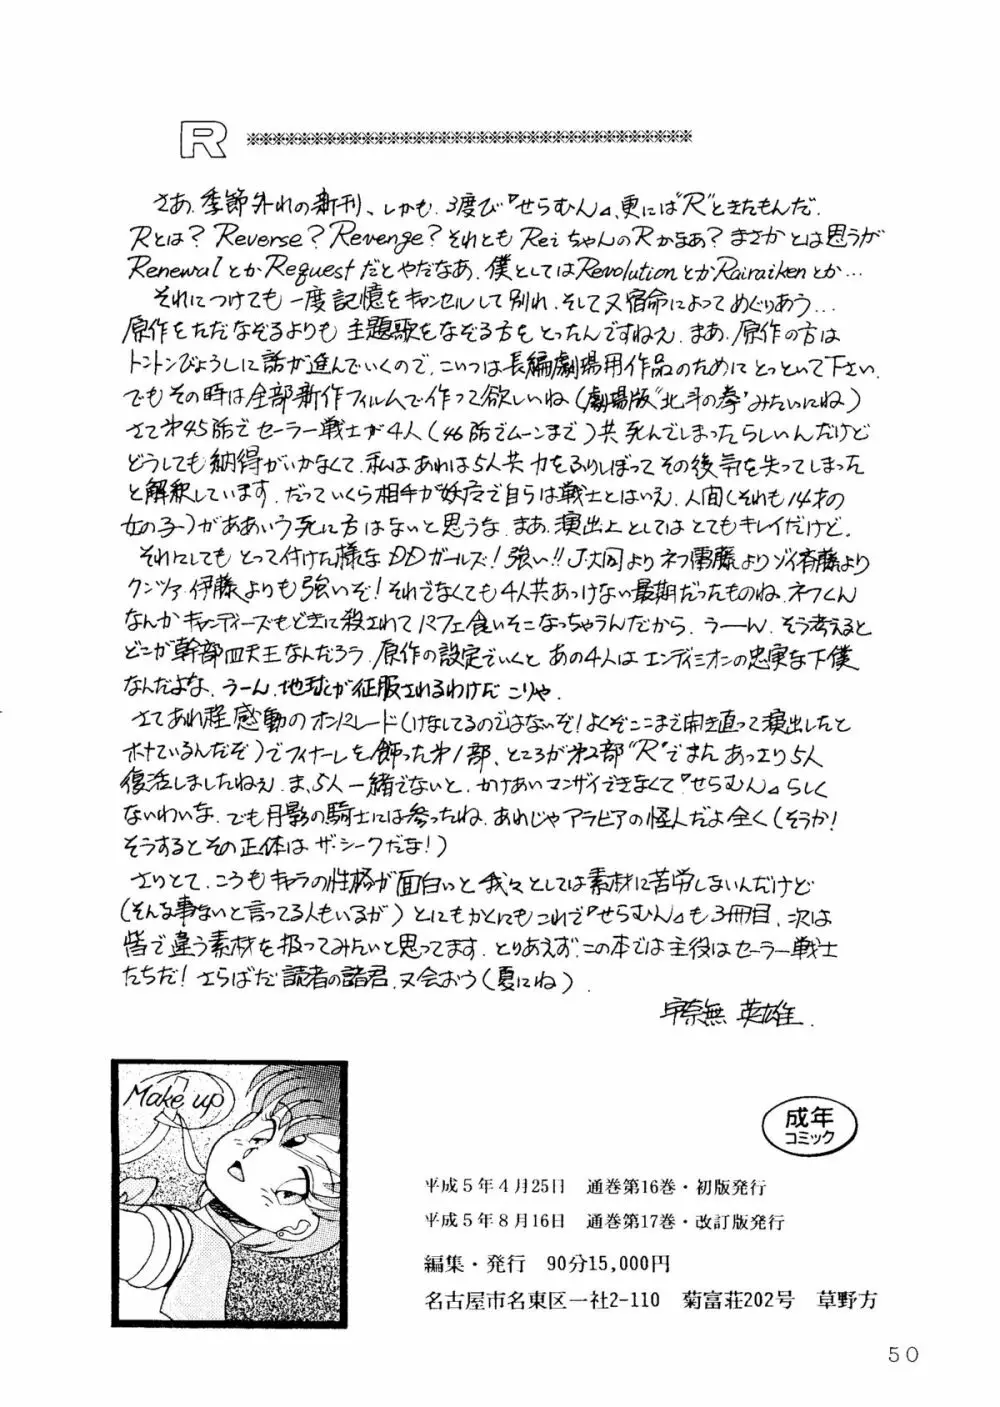 R
さあ、季節外れの新刊、しかも、3度び『せらむん』、更には“R”ときたもんだ。
Rとは？Reverse？Revenge？それともReiちゃんのRかなあ？まさかとは思うが
RenewalとかRequestだとやだなあ。僕としてはRevolutionとかRairaikenとか…
それにつけても一度記憶をキャンセルして別れ、そして又宿命によってめぐりあう…
原作をただなぞるよりも主題歌をなぞる方をとったんですねえ。まあ、原作の方は
トントンびょうしに話が進んでいくので、こいつは長編劇場用作品のためにとっといて下さい。
でもその時は全部新作フィルムで作って欲しいね（劇場版“北斗の拳”みたいにね）
さて第45話でセーラー戦士が4人（46話でムーンまで）共死んでしまったらしいんだけど
どうしても納得がいかなくて、私はあれは5人共力をふりしぼってその後気を失ってしまった
と解釈しています。だっていくら相手が妖魔で自らは戦士とはいえ、人間（それも14才の
女の子）がああいう死に方はないと思うな。まあ、演出上としてはとてもキレイだけど。
それにしてもとって付けた様なDDガールズ！強い!!J・大同よりネフ雷藤よりゾイ斉藤より
クンツァ伊藤よりも強いぞ！それでなくても4人共あっけない最期だったものね。ネフくん
なんかキャンディーズもどきに殺されてパフェ食いそこなっちゃうんだから。うーん、そう考えると
どこが幹部四天王なんだろう。原作の設定でいくとあの4人はエンディミオンの忠実な下僕
なんだよな。うーん、地球が征服されるわけだこりゃ。
さてあれ程感動のオンパレード（けなしてるのではないぞ！よくぞここまで開き直って演出したと
ホメているんだぞ）でフィナーレを飾った第1部、ところが第2部“R”でまたあっさり5人
復活しましたねえ。ま、5人一緒でないと、かけあいマンザイできなくて『せらむん』らしく
ないわいな。でも月影の騎士には参ったね。あれじゃアラビアの怪人だよ全く（そうか！
そうするとその正体はザ・シークだな！）
さりとて、こうもキャラの性格が面白いと我々としては素材に苦労しないんだけど
（そんな事ないと言ってる人もいるが）とにもかくにもこれで『せらむん』も3冊目、次は
皆で違う素材を扱ってみたいと思ってます。とりあえず、この本では主役はセーラー戦士
たちだ！さらばだ読者の諸君、又会おう（夏にね）．
宇奈無 英雄．
Make up
成年
コミック
平成5年4月25日　通巻第16巻・初版発行
平成5年8月16日　通巻第17巻・改訂版発行
編集・発行　90分15,000円
名古屋市名東区一社2-110　菊富荘202号　草野方
50